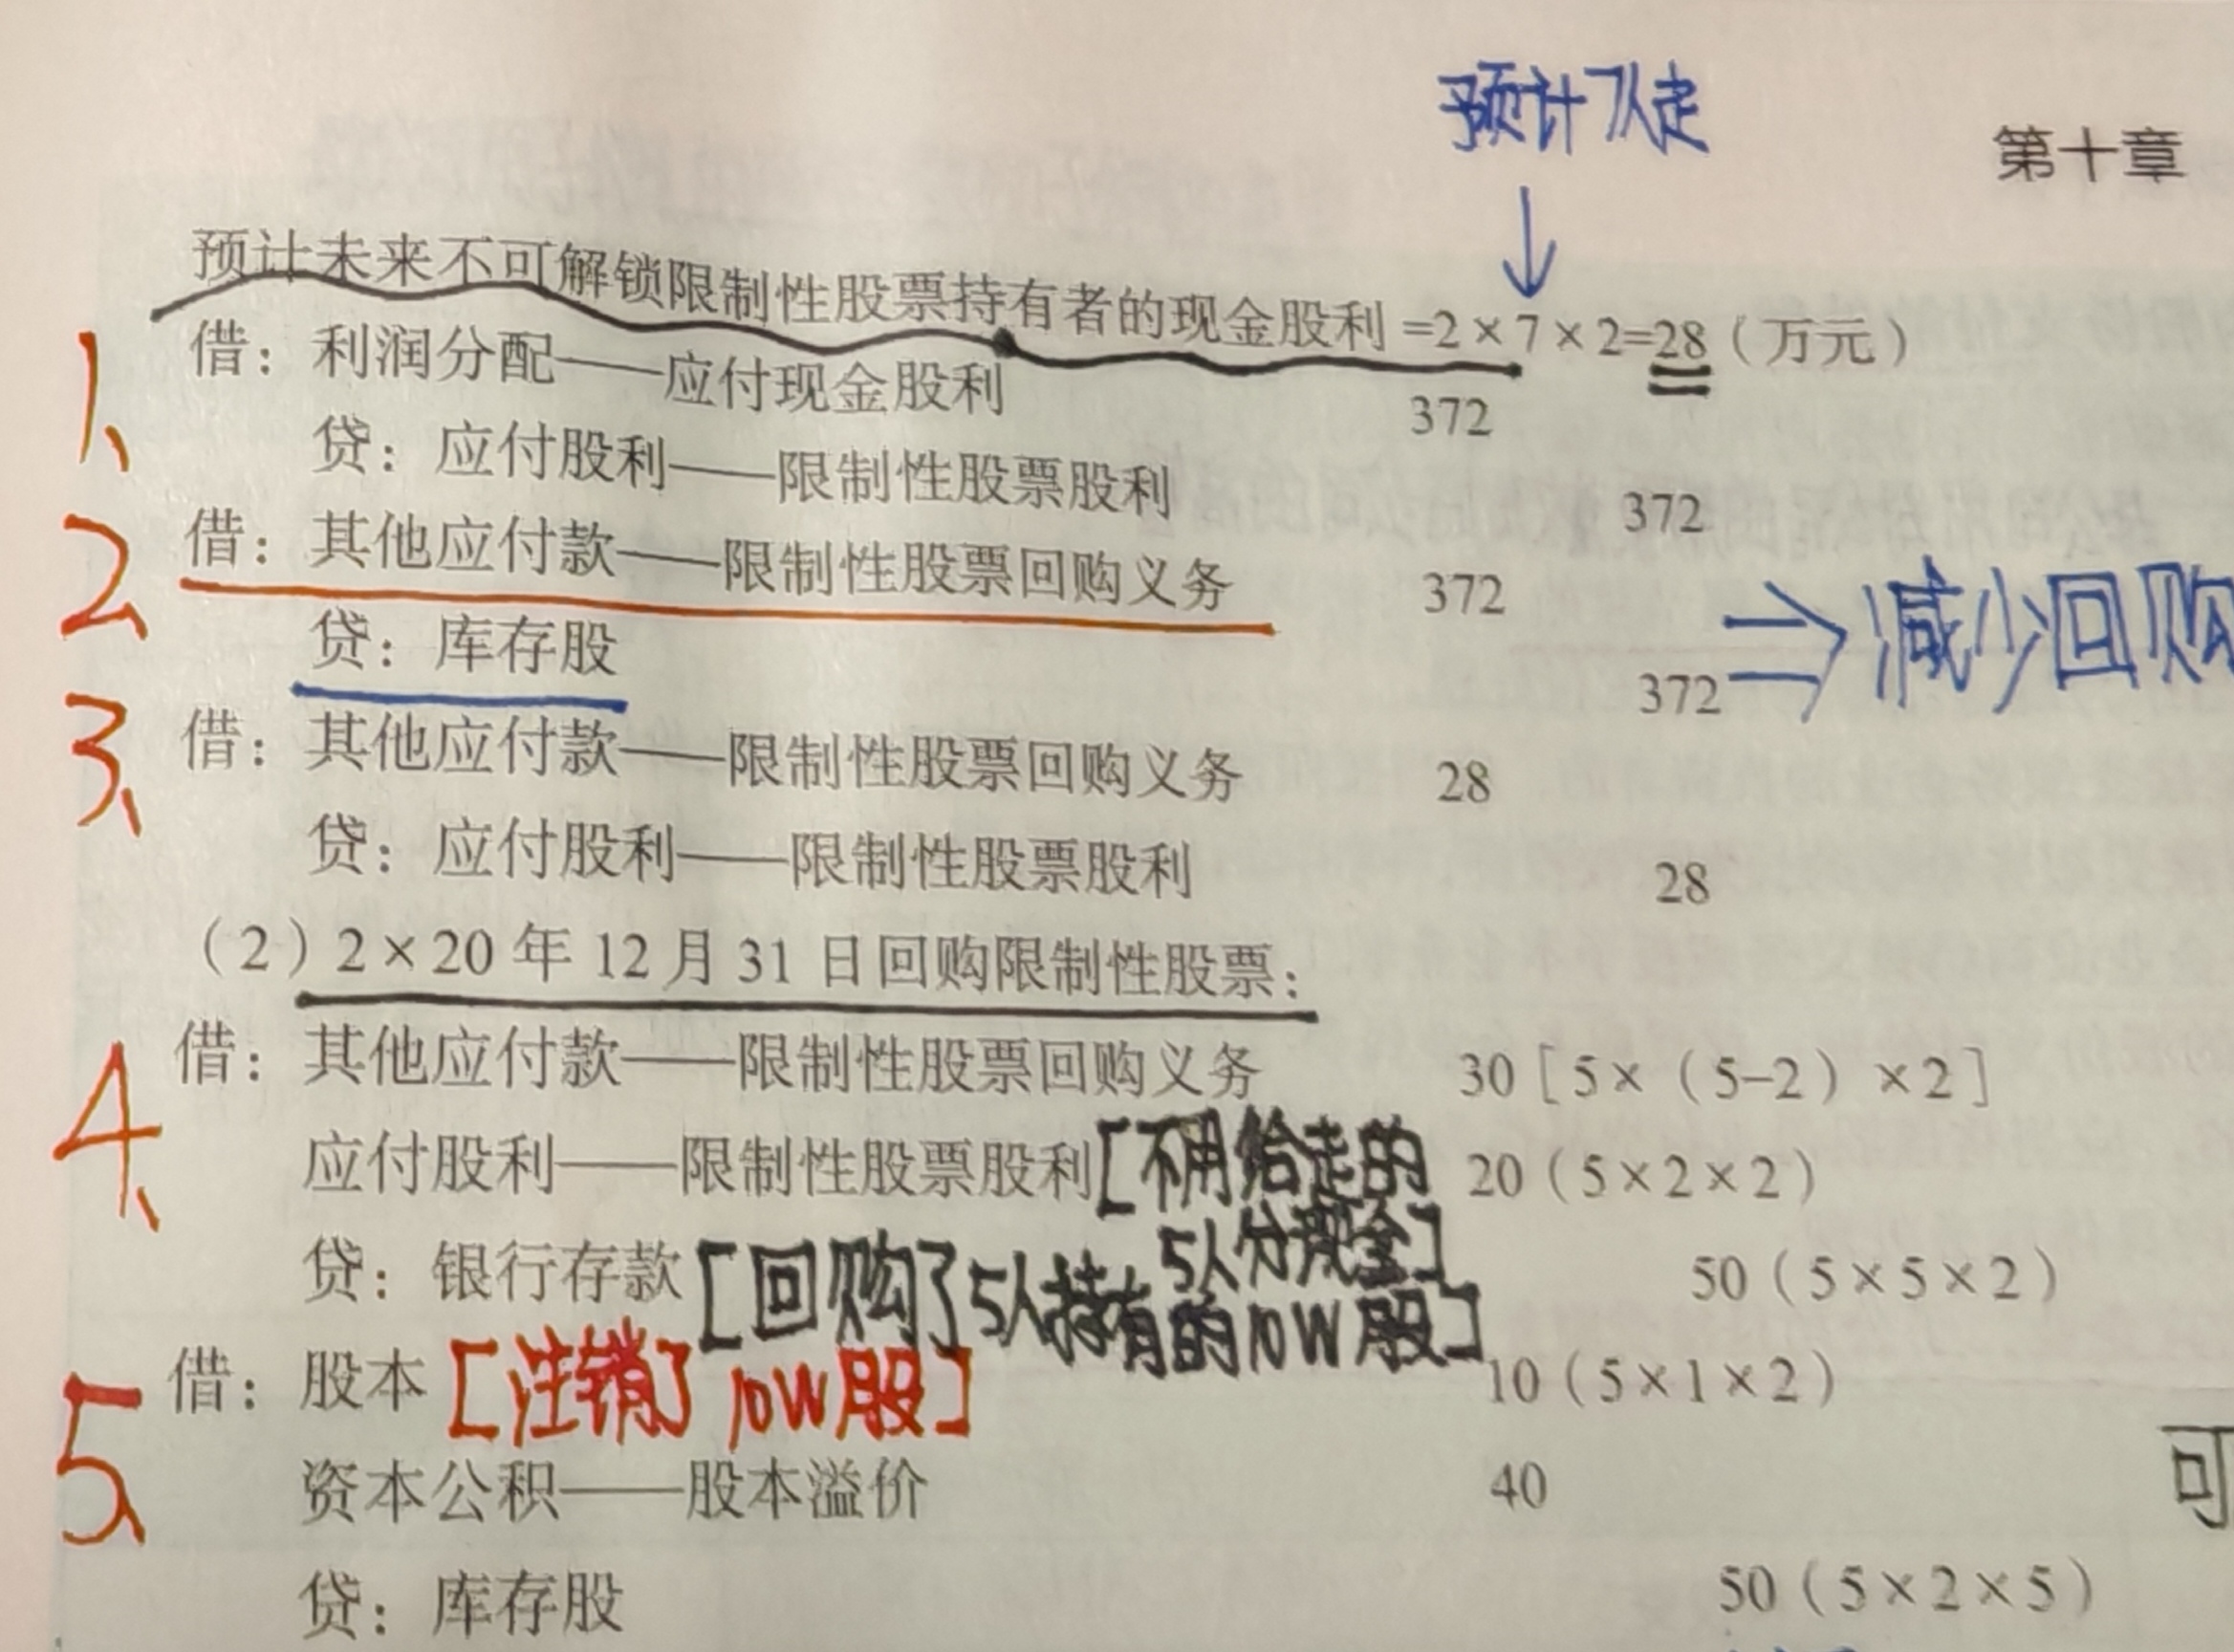 预计7人走
第十章
预计未来不可解锁限制性股票持有者的现金股利=2×7×2=28（万元）
1、
借：利润分配——应付现金股利 372
贷：应付股利——限制性股票股利 372
2、
借：其他应付款——限制性股票回购义务 372
贷：库存股 372
⇒减少回购
3、
借：其他应付款——限制性股票回购义务 28
贷：应付股利——限制性股票股利 28
（2）2×20年12月31日回购限制性股票：
4、
借：其他应付款——限制性股票回购义务 30［5×（5-2）×2］
应付股利——限制性股票股利 20（5×2×2）
[不用给走的
5人分现金]
贷：银行存款 50（5×5×2）
[回购了5人持有的10W股]
5、
借：股本 10（5×1×2）
[注销了10W股]
资本公积——股本溢价 40
可
贷：库存股 50（5×2×5）